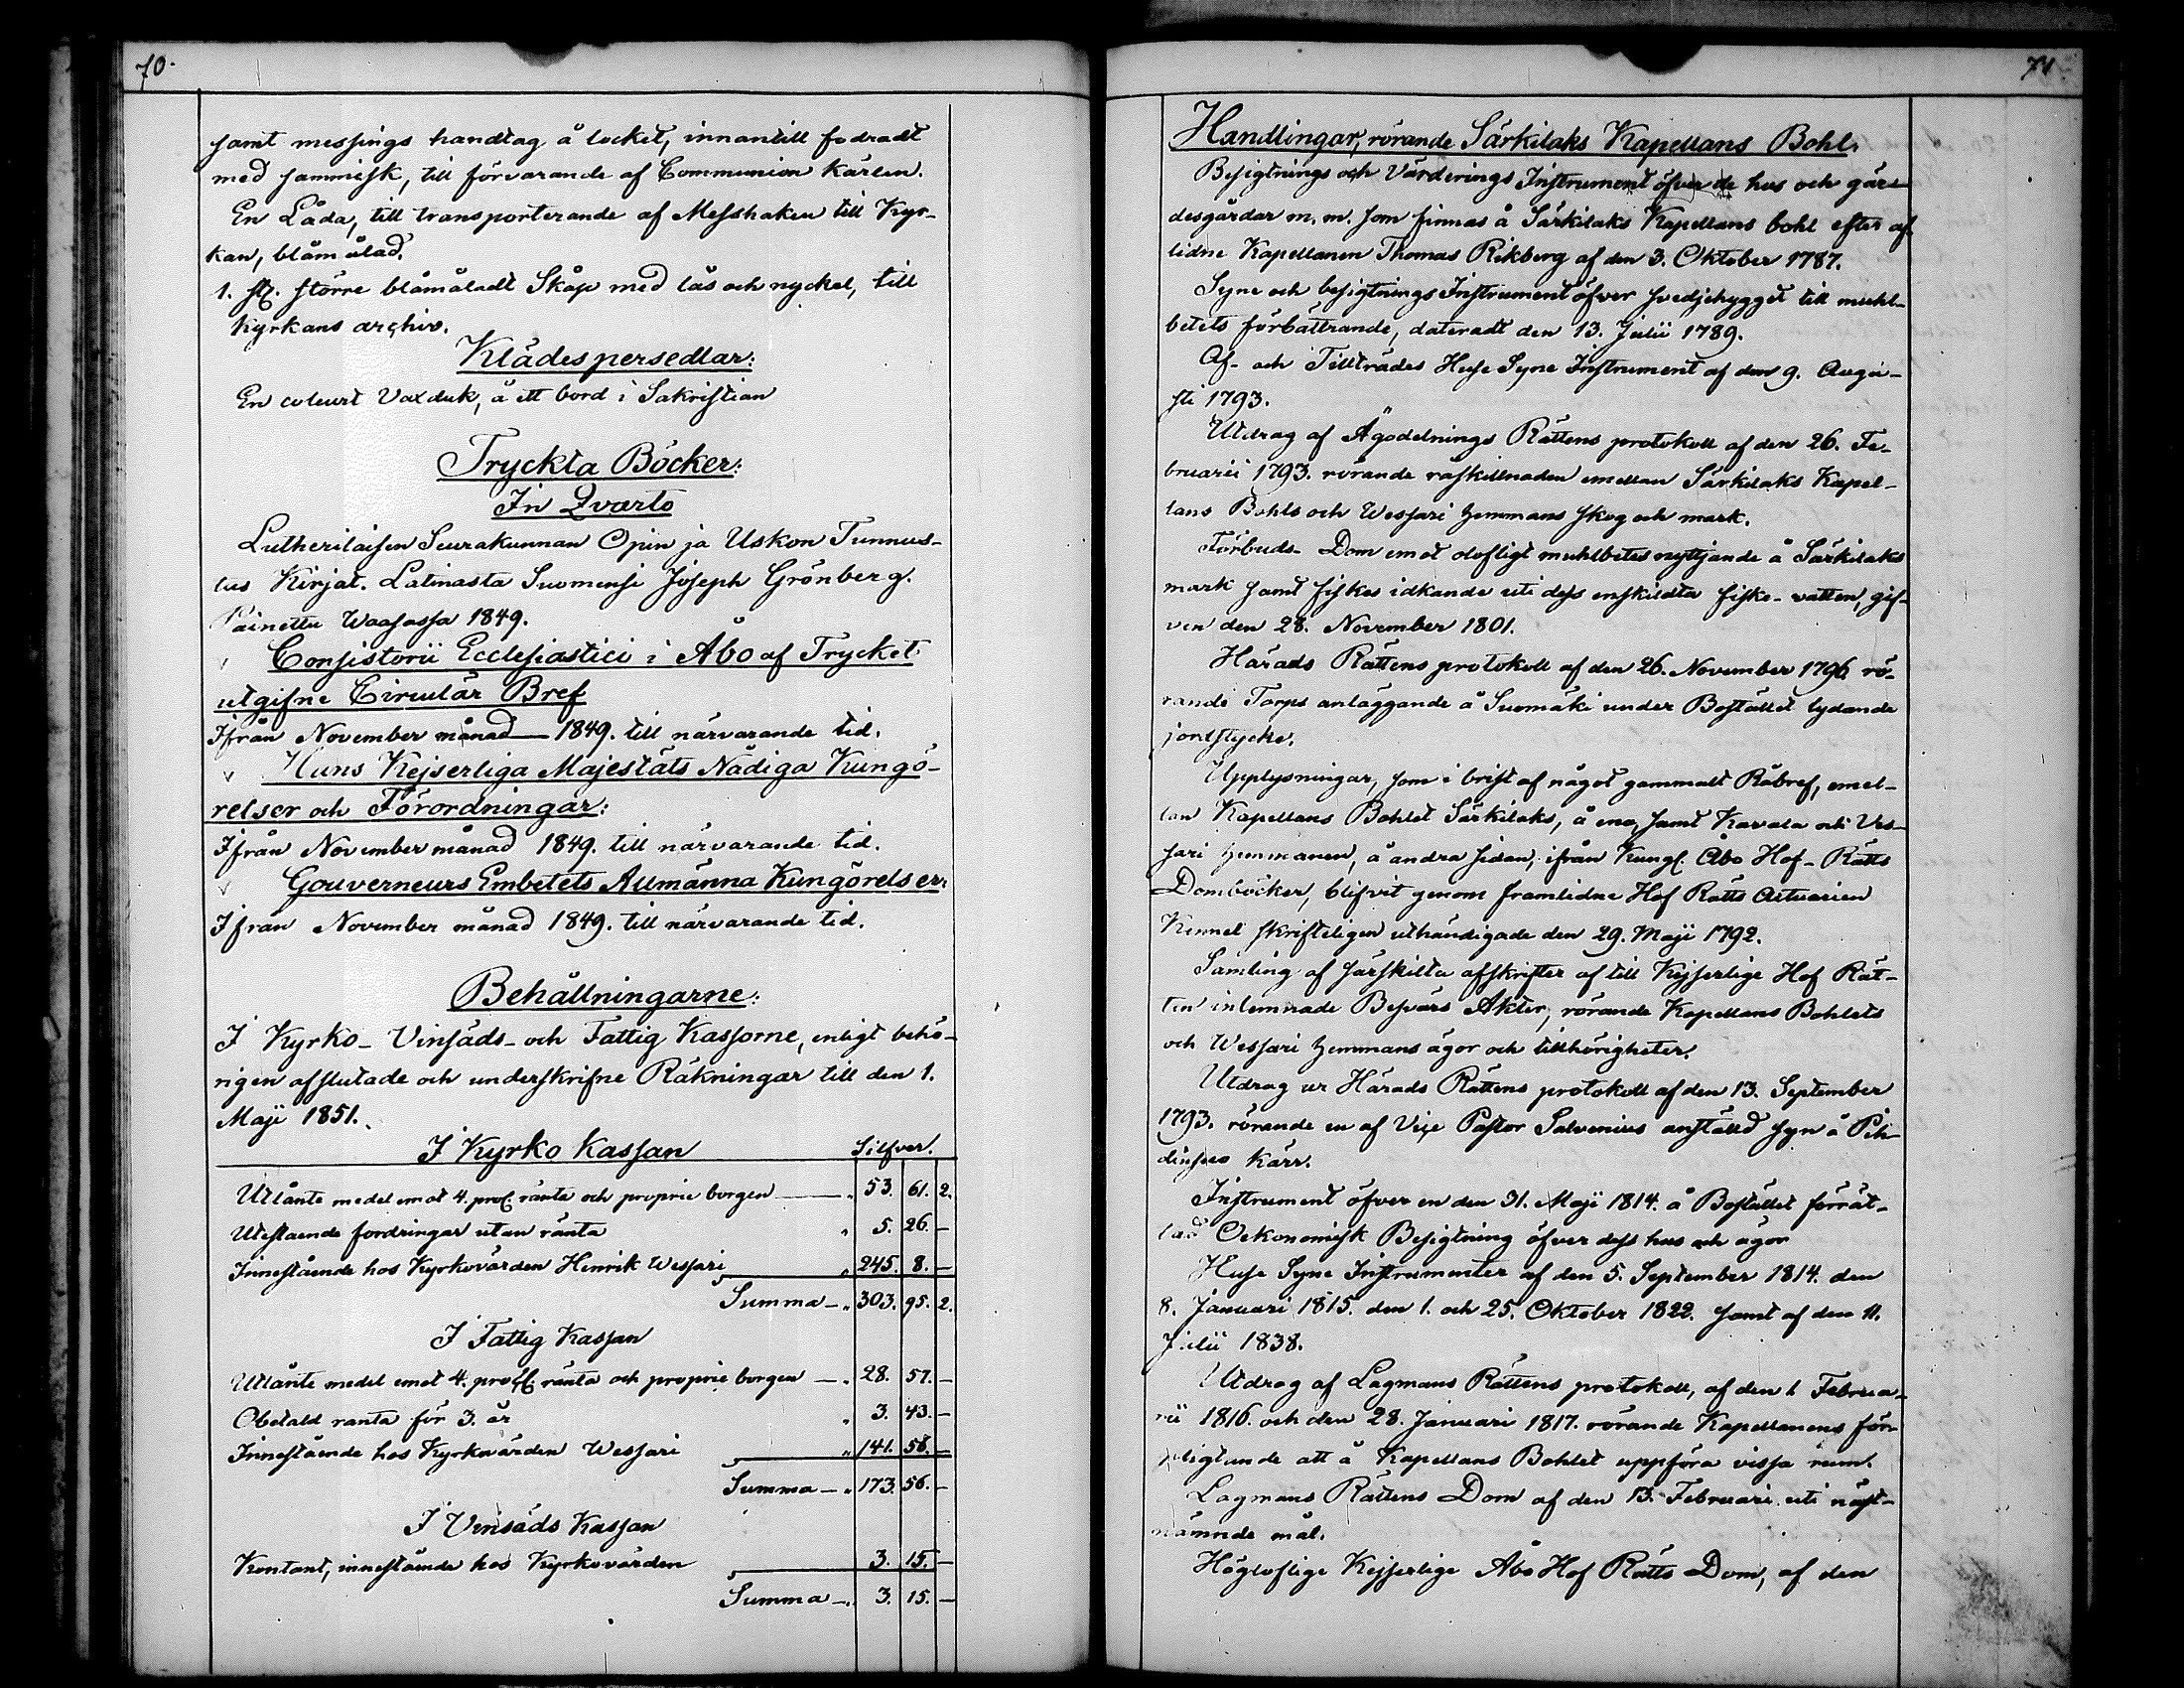 70.
samt messings handtag å locket, innantill fodradt
med sammisk, till förvarande af Communion kärlen.
En Låda, till transporterande af Messhaken till Kyr-
kan, blåmålad.
1. st. större blåmåladt Skåp med lås och nyckel, till
Kyrkans archiv.
Klädespersedlar:
En coleurt Vaxduk, å ett bord i Sakristian
Tryckta Böcker:
In Qvarto
Lutherilaisen Seurakunnan Opin ja Uskon Tunnus-
tus Kirjat. Latinasta Suomensi Joseph Grönberg.
Painettu Waasassa 1849.
Consistorii Ecclesiastici i Åbo af Trycket
utgifne Circulär Bref
Ifrån November månad 1849. till närvarande tid.
Hans Kejserliga Majestäts Nådiga Kungö-
relser och Förordningar:
Ifrån November månad 1849. till närvarande tid.
Gouverneurs Embetets Allmänna Kungörelser:
Ifrån November månad 1849. till närvarande tid.
Behållningarne:
I Kyrko- Vinsäds- och Fattig Kassorne, enligt behö-
rigen afslutade och underskrifne Räkningar till den 1.
Maji 1851.
I Kyrko Kassan Silfver.
Utlånte medel emot 4. proc. ränta och proprie borgen — „ 53. 61. 2.
Utestaende fordringar utan ränta „ 5. 26. —
Innestående hos Kyrkovärden Henrik Wessari „ 245. 8. —
Summa — „ 303. 95. 2.
I Fattig Kassan
Utlånte medel emot 4. proc. ränta och proprie borgen — „ 28. 57. —
Obetald ränta för 3. år „ 3. 43. —
Innestående hos Kyrkovärden Wessari „ 141. 56. —
Summa — „ 173. 56. —
I Vinsäds Kassan
Kontant, innestående hos Kyrkovärden 3. 15. —
Summa — „ 3. 15. —
71
Handlingar, rörande Särkilaks Kapellans Bohl.
Besigtnings och Värderings Instrument öfver de hus och gär-
desgårdar m. m. som finnas å Särkilaks Kapellans bohl efter af-
lidne Kapellanen Thomas Rikberg af den 3. Oktober 1787.
Syne och besigtnings Instrument öfver svedjehygget till muhl-
betets förbättrande, dateradt den 13. Julii 1789.
Af- och Tillträdes Huse Syne Instrument af den 9. Augu-
sti 1793.
Utdrag af Ägodelnings Rättens protokoll af den 26. Fe-
bruarii 1793. rörande råskillnaden emellan Särkilaks Kapel-
lans Bohls och Wessari hemmans skog och mark.
Förbuds- Dom emot olofligt muhlbetes nyttjande å Särkilaks
mark samt fiskes idkande uti dess enskildta fiske-vatten, gif-
ven den 28. November 1801.
Härads Rättens protokoll af den 26. November 1796 rö-
rande Torps anläggande å Suomäki under Bostället lydande
jordstycke.
Upplysningar, som i brist af något gammalt Råbref, emel-
lan Kapellans Bohlet Särkilaks, å ena, samt Kavala och Ves-
sari hemmanen, å andra sidan, ifrån Kungl. Åbo Hof-Rätts
Domböcker, blifvit genom framlidne Hof Rätts Actuarien
Kinnel skrifteligen uthändigade den 29. Maji 1792.
Samling af särskilta afskrifter af till Kejserlige Hof Rät-
ten inlemnade Besvärs Akter, rörande Kapellans Bohlets
och Wessari hemmans ägor och tillhörigheter.
Utdrag ur Härads Rättens protokoll af den 13. September
1793. rörande en af Vice Pastor Salvenius anställd syn å Pih-
dinsuo kärr.
Instrument öfver en den 31. Maji 1814. å Bostället förrät-
tad Oekonomisk Besigtning öfver dess hus och ägor
Huse Syne Instrumenter af den 5. September 1814. den
8. Januari 1815. den 1. och 25. Oktober 1822. samt af den 11.
Julii 1838.
Utdrag af Lagmans Rättens protokoll, af den 1 Februa-
rii 1816. och den 28. Januari 1817. rörande Kapellanens för-
pligtande att å Kapellans Bohlet uppföra vissa rum.
Lagmans Rättens Dom af den 13. Februari uti näst-
nämnde mål.
Högloflige Kejserlige Åbo Hof Rätts Dom, af den